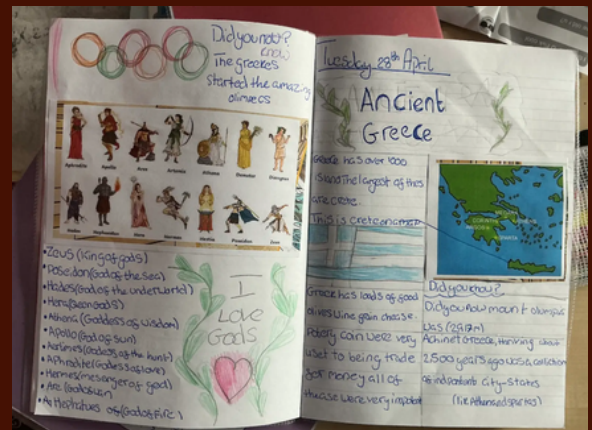 Did you now?
know
The greekes
Started the amazing
olimecs
Aphrodite Apollo Ares Artemis Athena Demeter Dionysus
Hades Hephaestus Hera Hermes Hestia Poseidon Zeus
•Zeus (King of gods)
•Poseidon (God of the sea)
•Hades (God of the underworld)
•Athena (Goddess of wisdom)
•Apollo (God of sun)
•Aphrodite (Godess of love)
•Hermes (mesenger of god)
I
Love
Gods
Tuesday 28th April
Ancient
Greece
Greece has over 1000
island The largest of thes
are crete.
This is crete on a map
CORINTH
SPARTA
Greece has loads of good
olives wine grain cheese.
Potery coin were very
uset to being trade
for money all of
thease were very importent
Did you know?
Did you now mount olompus
was (2917m)
Achinet Greece, thriving about
2,500 years ago was a collection
of indipendants city-states
(like Athens and spartas)